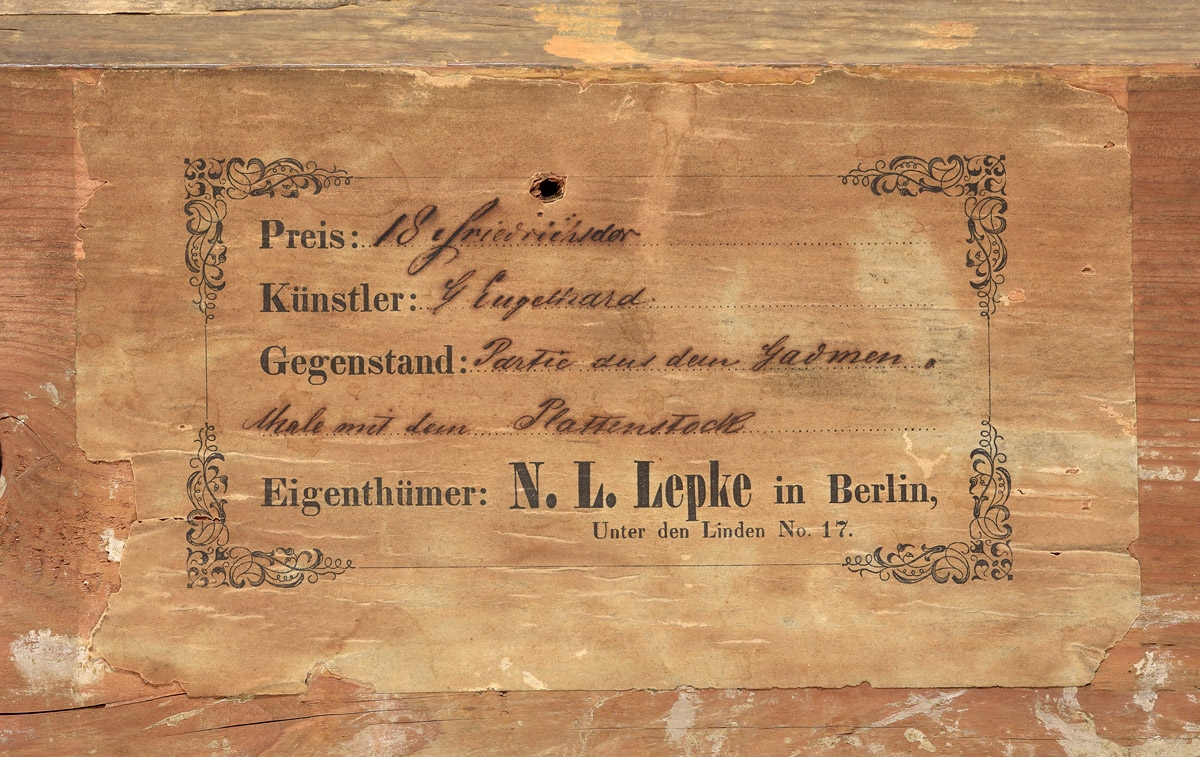 Preis: 18 Friedrichsdor
Künstler: G Engelhard.
Gegenstand: Partie aus dem Gadmen
thale mit dem Plattenstock
Eigenthümer: N. L. Lepke in Berlin,
Unter den Linden No. 17.